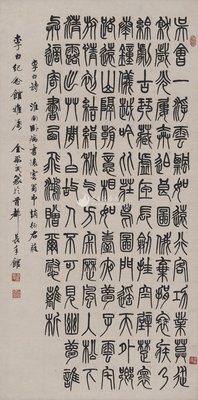 吳會一浮雲飄如遠行客功業莫從
就歲光屢奔迫良圖俄棄捐衰疾乃
緜劇古琴藏虛匣長劍挂空壁楚懷
奏鐘儀越吟比莊舄國門遙天外鄉
路遠山隔朝憶相如臺夜夢子雲宅
旅情初結緝秋氣方寂歷風入松下
清露出草間白故人不可見幽夢誰
與適寄書西飛鴻贈爾慰離析
李白詩 淮南卧病書懷寄蜀中趙徵君蕤
李白紀念館雅屬
於首都